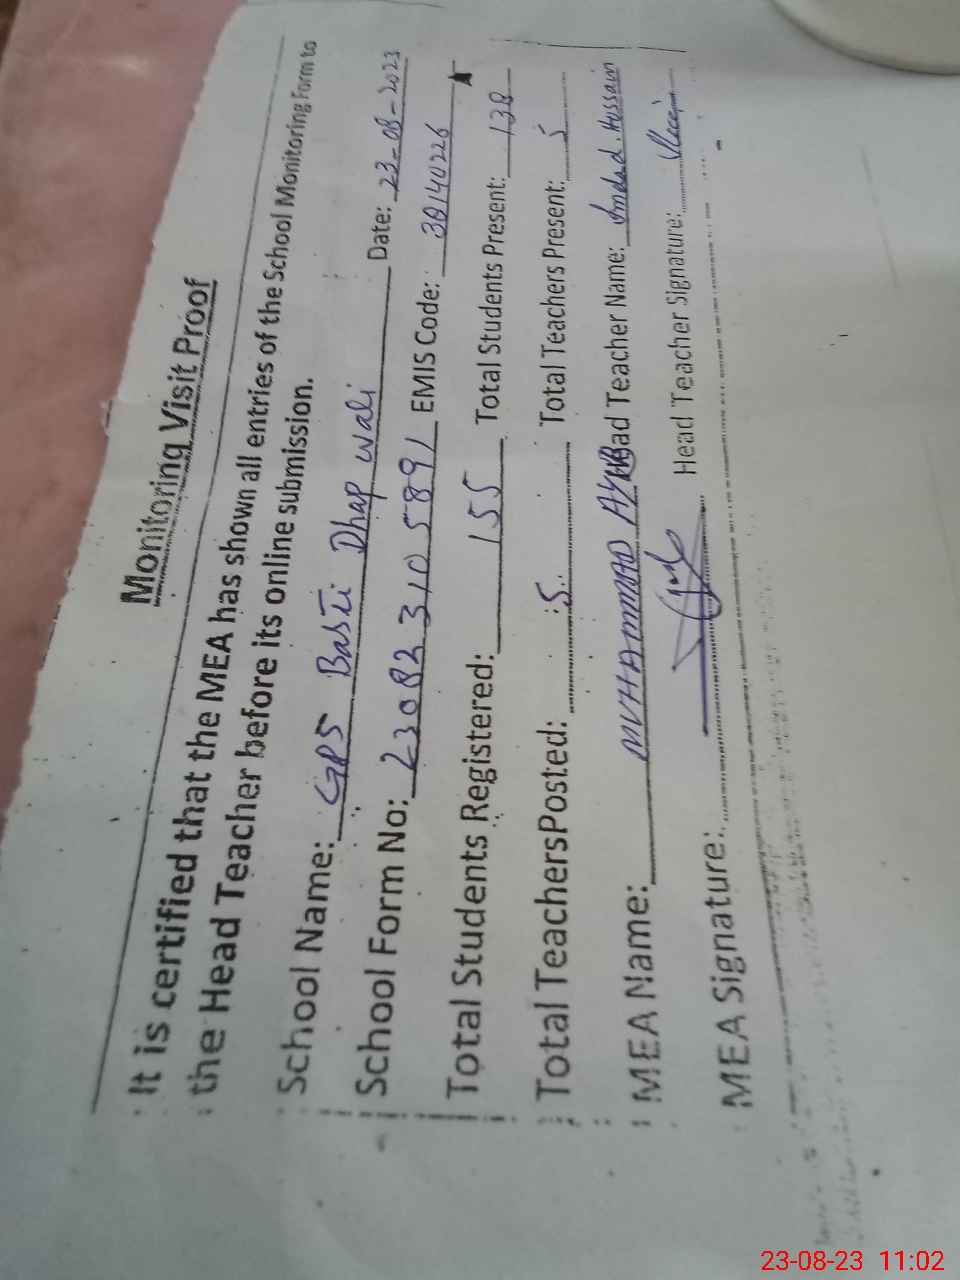 Monitoring Visit Proof
It is certified that the MEA has shown all entries of the School Monitoring Form to
the Head Teacher before its online submission.
School Name: GPS Basti Dhap wali Date: 23-08-2023
School Form No: 230823105891 EMIS Code: 38140226
Total Students Registered: 155 Total Students Present: 138
Total TeachersPosted: 5 Total Teachers Present: 5
MEA Name: MUHAMMAD Head Teacher Name: Imdad Hussain
MEA Signature: Head Teacher Signature:
23-08-23 11:02